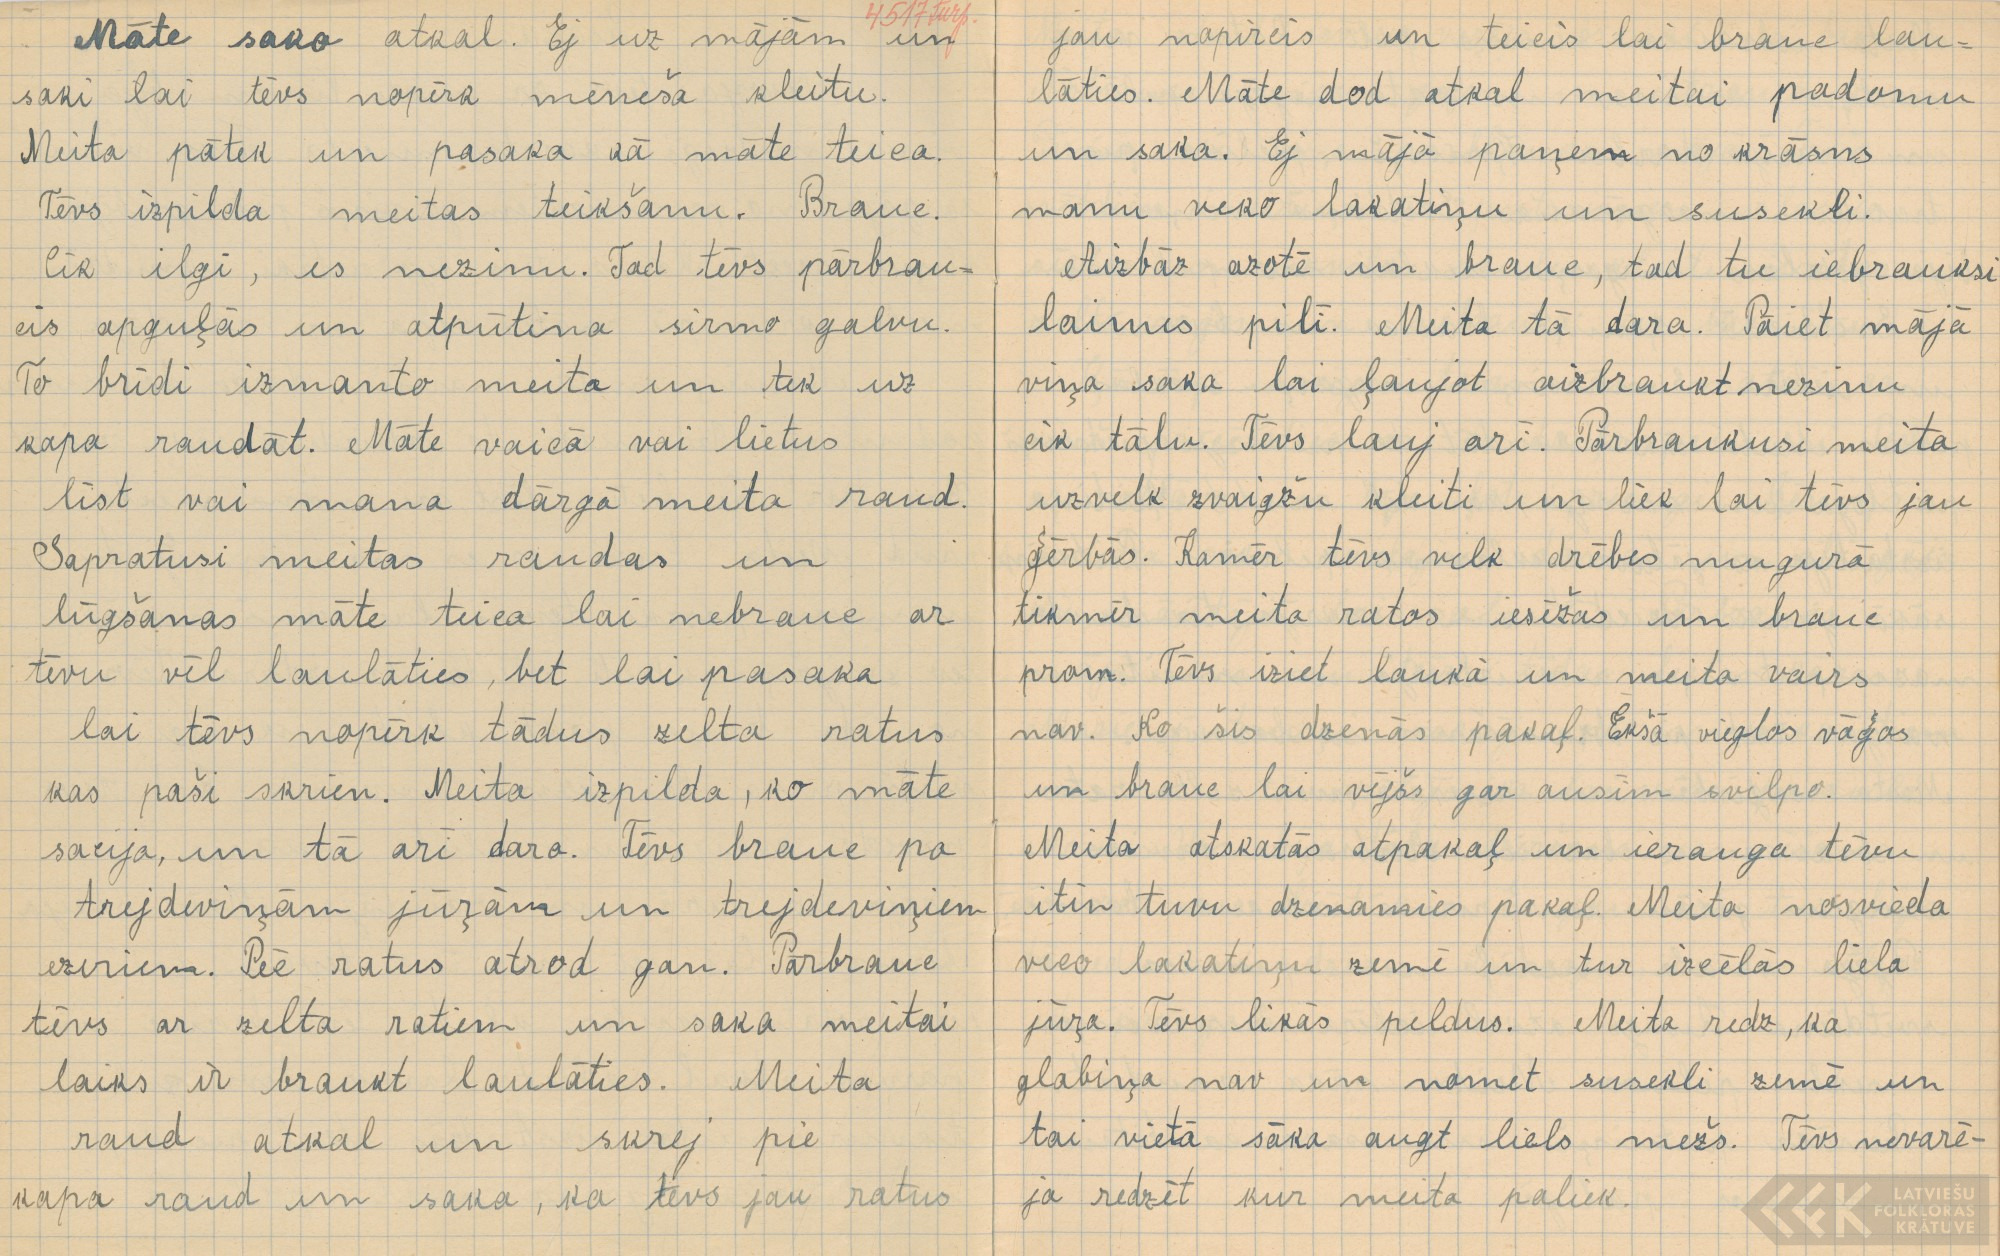 4517 turp.
Māte sako atkal. Ej uz mājām un
saki lai tēvs nopērk mēneša kleitu.
Meita pātek un pasaka kā māte teica.
Tēvs izpilda meitas teikšanu. Brauc.
Cik ilgi, es nezinu. Tad tēvs pārbrau=
cis apguļās un atpūtina sirmo galvu.
To brīdi izmanto meita un tek uz
kapa raudāt. Māte vaicā vai lietus
līst vai mana dārgā meita raud.
Sapratusi meitas raudas un
lūgšanas māte teica lai nebrauc ar
tēvu vēl laulāties, bet lai pasaka
lai tēvs nopērk tādus zelta ratus
kas paši skrien. Meita izpilda, ko māte
sacija, un tā arī dara. Tēvs brauc pa
trejdeviņām jūŗām un trejdeviņiem
ezeriem. Pēc ratus atrod gan. Pārbrauc
tēvs ar zelta ratiem un saka meitai
laiks ir braukt laulāties. Meita
raud atkal un skrej pie
kapa raud un saka, ka tēvs jau ratus
jau nopircis un teicis lai brauc lau=
lāties. Māte dod atkal meitai padomu
un saka. Ej mājā paņem no krāsns
manu veko lakatiņu un susekli.
Aizbāz azotē un brauc, tad tu iebrauksi
laimes pilī. Meita tā dara. Pāiet mājā
viņa saka lai ļaujot aizbraukt nezinu
cik tālu. Tēvs lauj arī. Pārbraukusi meita
uzvelk zvaigžu kleiti un liek lai tēvs jau
ģērbās. Kamēr tēvs velk drēbes mugurā
tikmēr meita ratos iesēžas un brauc
prom. Tēvs iziet laukā un meita vairs
nav. Ko šis dzenās pakaļ. Ēkšā vieglos vāģos
un brauc lai vējšs gar ausīm svilpo.
Meita atskatās atpakaļ un ierauga tēvu
itin tuvu dzenamies pakaļ. Meita nosvieda
veco lakatiņu zemē un tur izcēlās liela
jūŗa. Tēvs likās peldus. Meita redz, ka
glabiņa nav un nomet susekli zemē un
tai vietā sāka augt liels mežs. Tēvs nevarē-
ja redzēt kur meita paliek.
LATVIEŠU
FOLKLORAS
KRĀTUVE